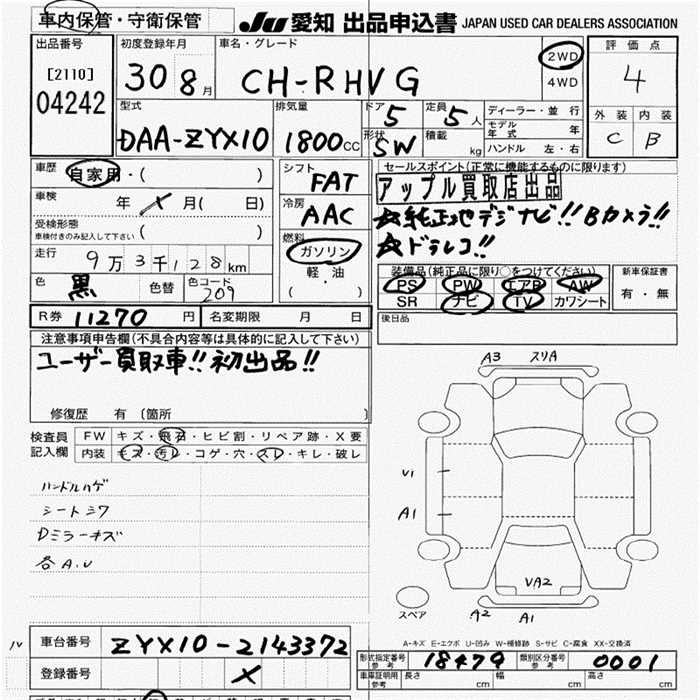 車内保管・守衛保管 JU 愛知 出品申込書 JAPAN USED CAR DEALERS ASSOCIATION
出品番号 初度登録年月 車名・グレード 2WD 評価点
[2110] 30 8月 CH-R HV G 4WD 4
04242
型式 排気量 ドア 定員 ディーラー・並行 外装 内装
DAA-ZYX10 1800cc 5 5人 モデル年式 年 C B
形状 SW 積載 kg ハンドル 左・右
車歴 自家用・( ) シフト FAT セールスポイント(正常に機能するものに限ります)
アップル買取店出品
車検 年 X 月( 日) 冷房 AAC ☆純正地デジナビ!! Bカメラ!!
受検形態 車検付きのみ記入して下さい ( ) 燃料 ☆ドラレコ!!
走行 9万3千128km ガソリン 装備品(純正品に限り○をつけてください) 新車保証書
軽・油 PS PW エアB AW 有・無
色 黒 色替 色コード 209 ( ) SR ナビ TV カワシート
R券 11270 円 名変期限 月 日 後日品
注意事項申告欄(不具合内容等は具体的に記入して下さい)
ユーザー買取車!! 初出品!!
修復歴 有 〔箇所 〕
検査員記入欄 FW キズ・飛石・ヒビ割・リペア跡・X要
内装 キズ・汚レ・コゲ・穴・スレ・キレ・破レ
ハンドルハゲ
シートシワ
Dミラーキズ
各A.U
A3 スリA
U1
A1
VA2
スペア A2 A1
A-キズ E-エクボ U-凹み W-補修跡 S-サビ C-腐食 XX-交換済
車台番号 ZYX10-2143372 形式指定番号 参考 18479 類別区分番号 参考 0001
登録番号 X 車庫証明用 参考 長さ cm 幅 cm 高さ cm